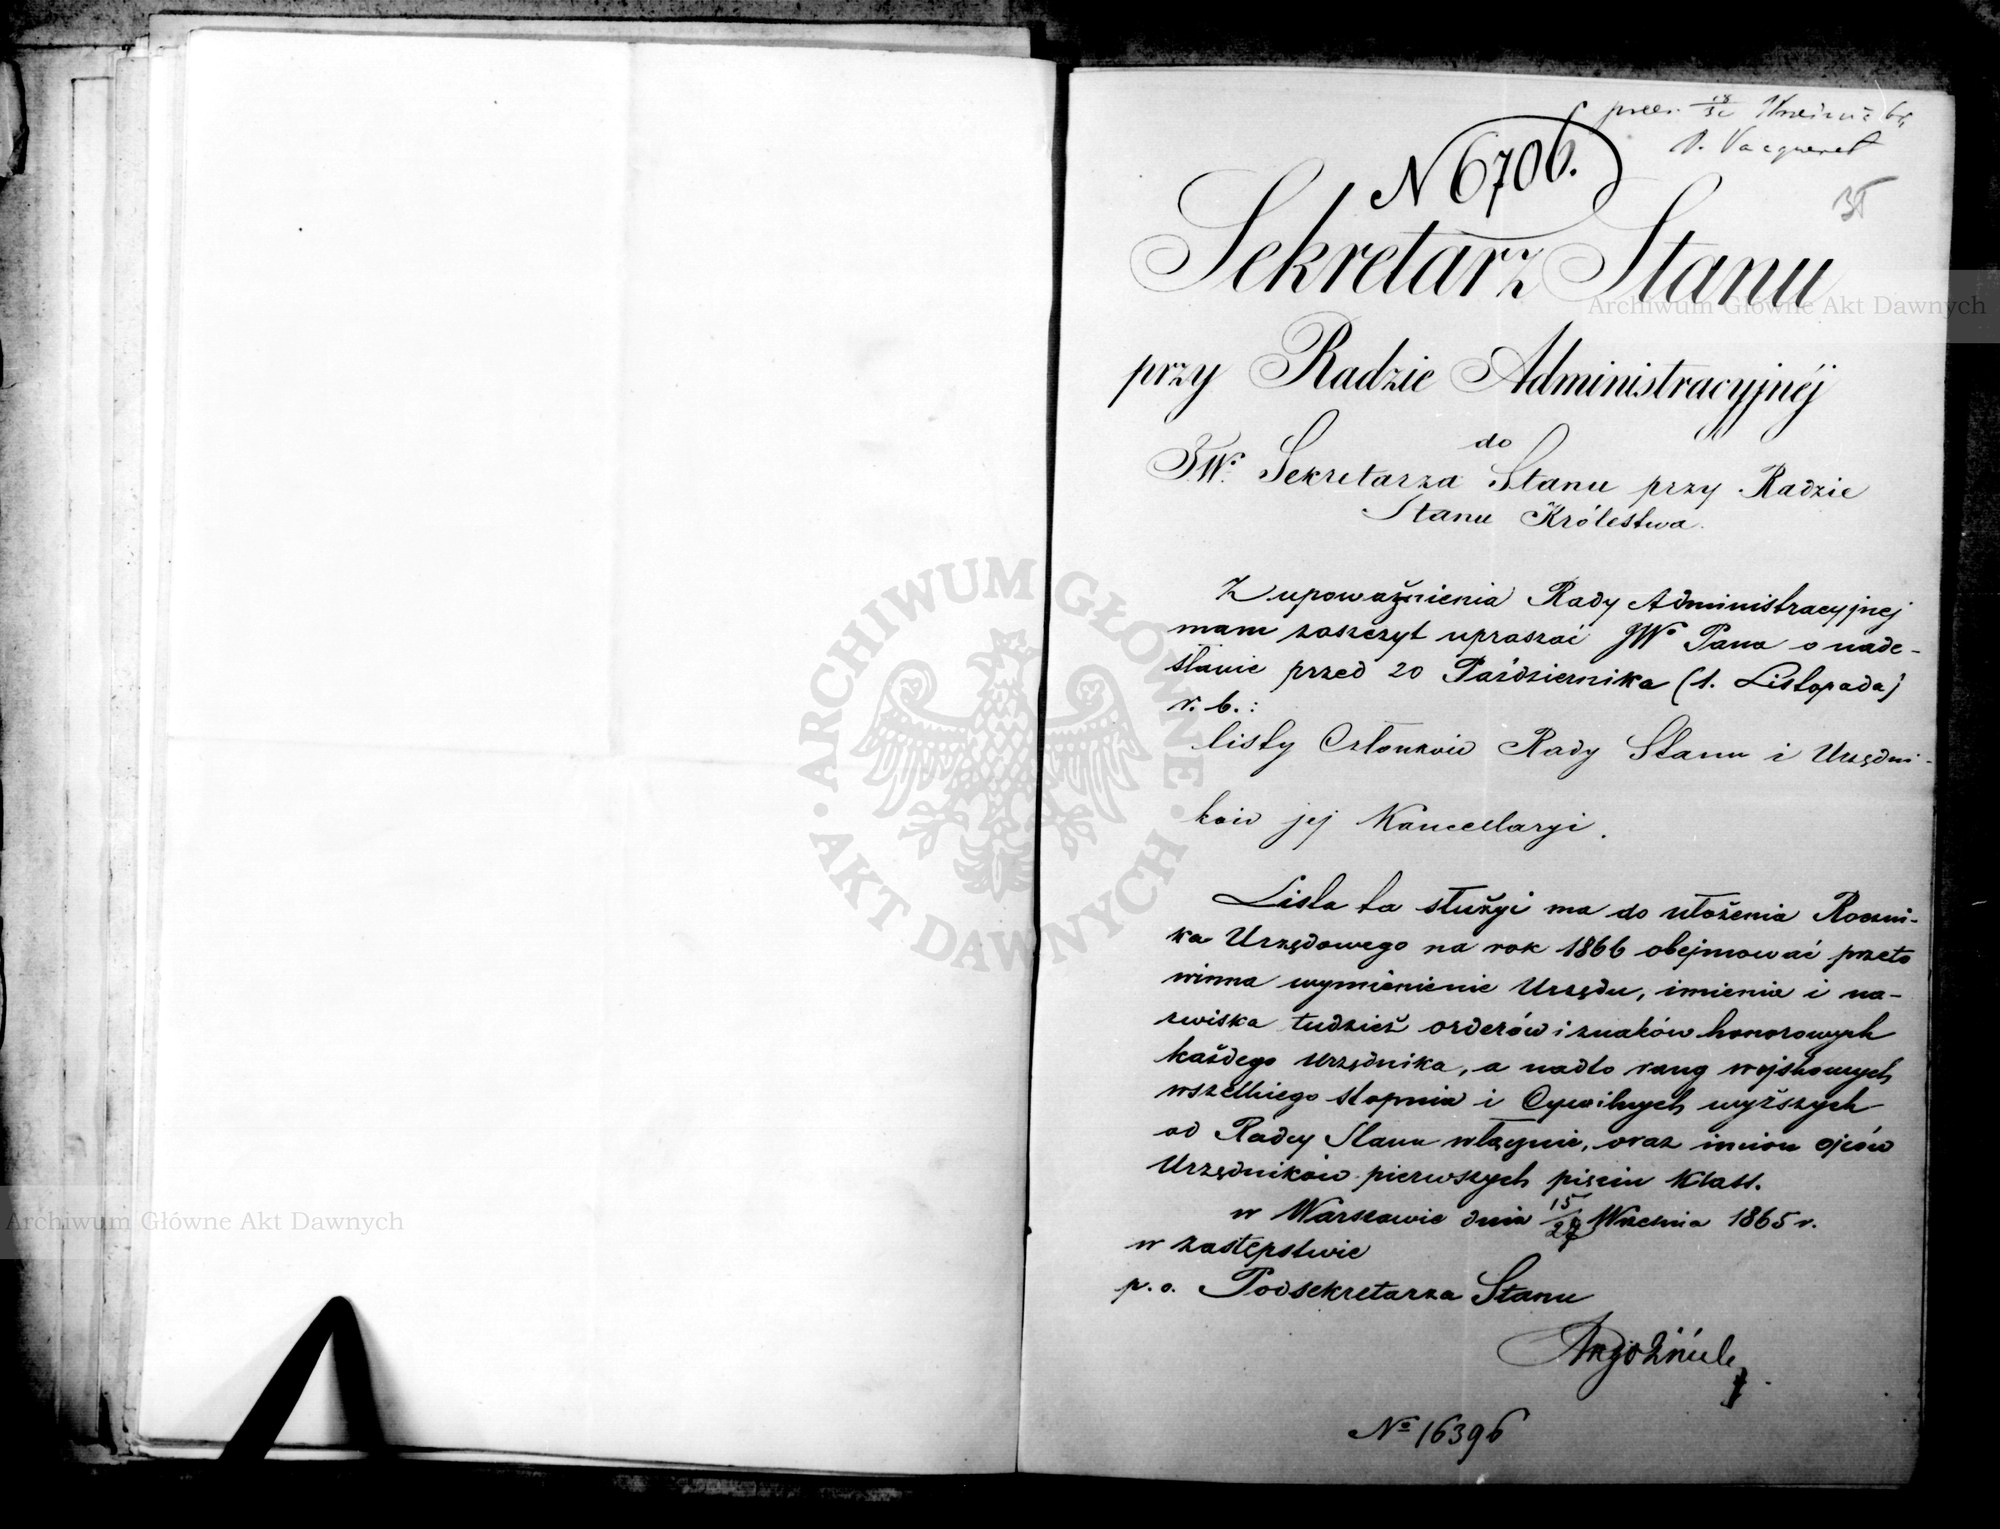 N 6706.
35
Sekretarz Stanu
przy Radzie Administracyjnéj
do
JW. Sekretarza Stanu przy Radzie
Stanu Królestwa.
Z upoważnienia Rady Administracyjnej
mam zaszczyt upraszać JW. Pana o nade-
słanie przed 20 Października (1. Listopada)
r. b.:
listy Członków Rady Stanu i Urzędni-
ków jej Kancellaryi.
Lista ta służyć ma do ułożenia Roczni-
ka Urzędowego na rok 1866 obejmować przeto
winna wymienienie Urzędu, imienia i na-
zwiska tudzież orderów i znaków honorowych
każdego urzędnika, a nadto rang wojskowych
wszelkiego stopnia i Cywilnych wyższych
od Radcy Stanu włącznie, oraz imion ojców
Urzędników pierwszych pięciu Klass.
w Warszawie dnia 15/27 Września 1865 r.
w zastępstwie
p. o. Podsekretarza Stanu
No 16396
ARCHIWUM GŁÓWNE AKT DAWNYCH
Archiwum Główne Akt Dawnych
Archiwum Główne Akt Dawnych